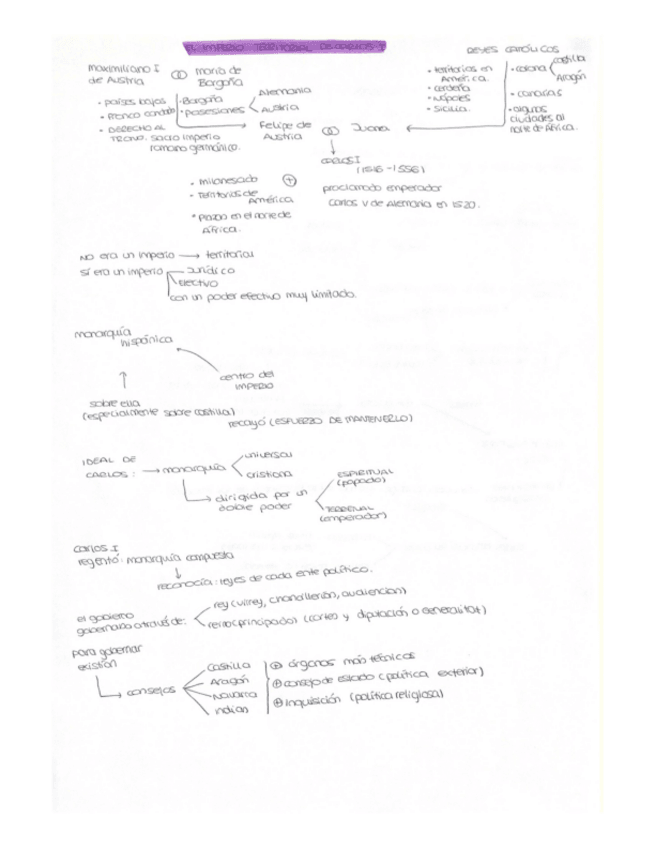 EL IMPERIO TERRITORIAL DE CARLOS I
REYES CATÓLICOS
Maximiliano I
de Austria
María de
Borgoña
· países bajos
· Franco condado
· DERECHO AL
TRONO. Sacro imperio
romano germánico.
· Borgoña
· posesiones
Alemania
Austria
· territorios en
América.
· cerdeña
· Nápoles
· Sicilia.
· corona
castilla
Aragón
· canarias
· algunas
ciudades al
norte de África.
Felipe de
Austria
Juana
CARLOS I
(1516 - 1556)
proclamado emperador
Carlos V de Alemania en 1520.
· milanesado
· Territorios de
América
· Plazas en el norte de
África.
NO era un imperio → territorial
SÍ era un imperio
Jurídico
Electivo
con un poder efectivo muy limitado.
monarquía
hispánica
centro del
IMPERIO
sobre ella
(especialmente sobre castilla)
recayó (ESFUERZO DE MANTENERLO)
IDEAL DE
CARLOS : → monarquía
universal
cristiana
→ dirigida por un
doble poder
ESPIRITUAL
(papado)
TERRENAL
(emperador)
Carlos I
regentó: monarquía compuesta
↓
reconocía: leyes de cada ente político.
el gobierno
gobernaba a través de:
rey (virrey, chancillerías, audiencias)
reino (principado) (cortes y diputación o Generalitat)
para gobernar
existían
→ consejos
Castilla
Aragón
Navarra
Indias
⊕ órganos más técnicos
⊕ consejo de estado (política exterior)
⊕ Inquisición (política religiosa)